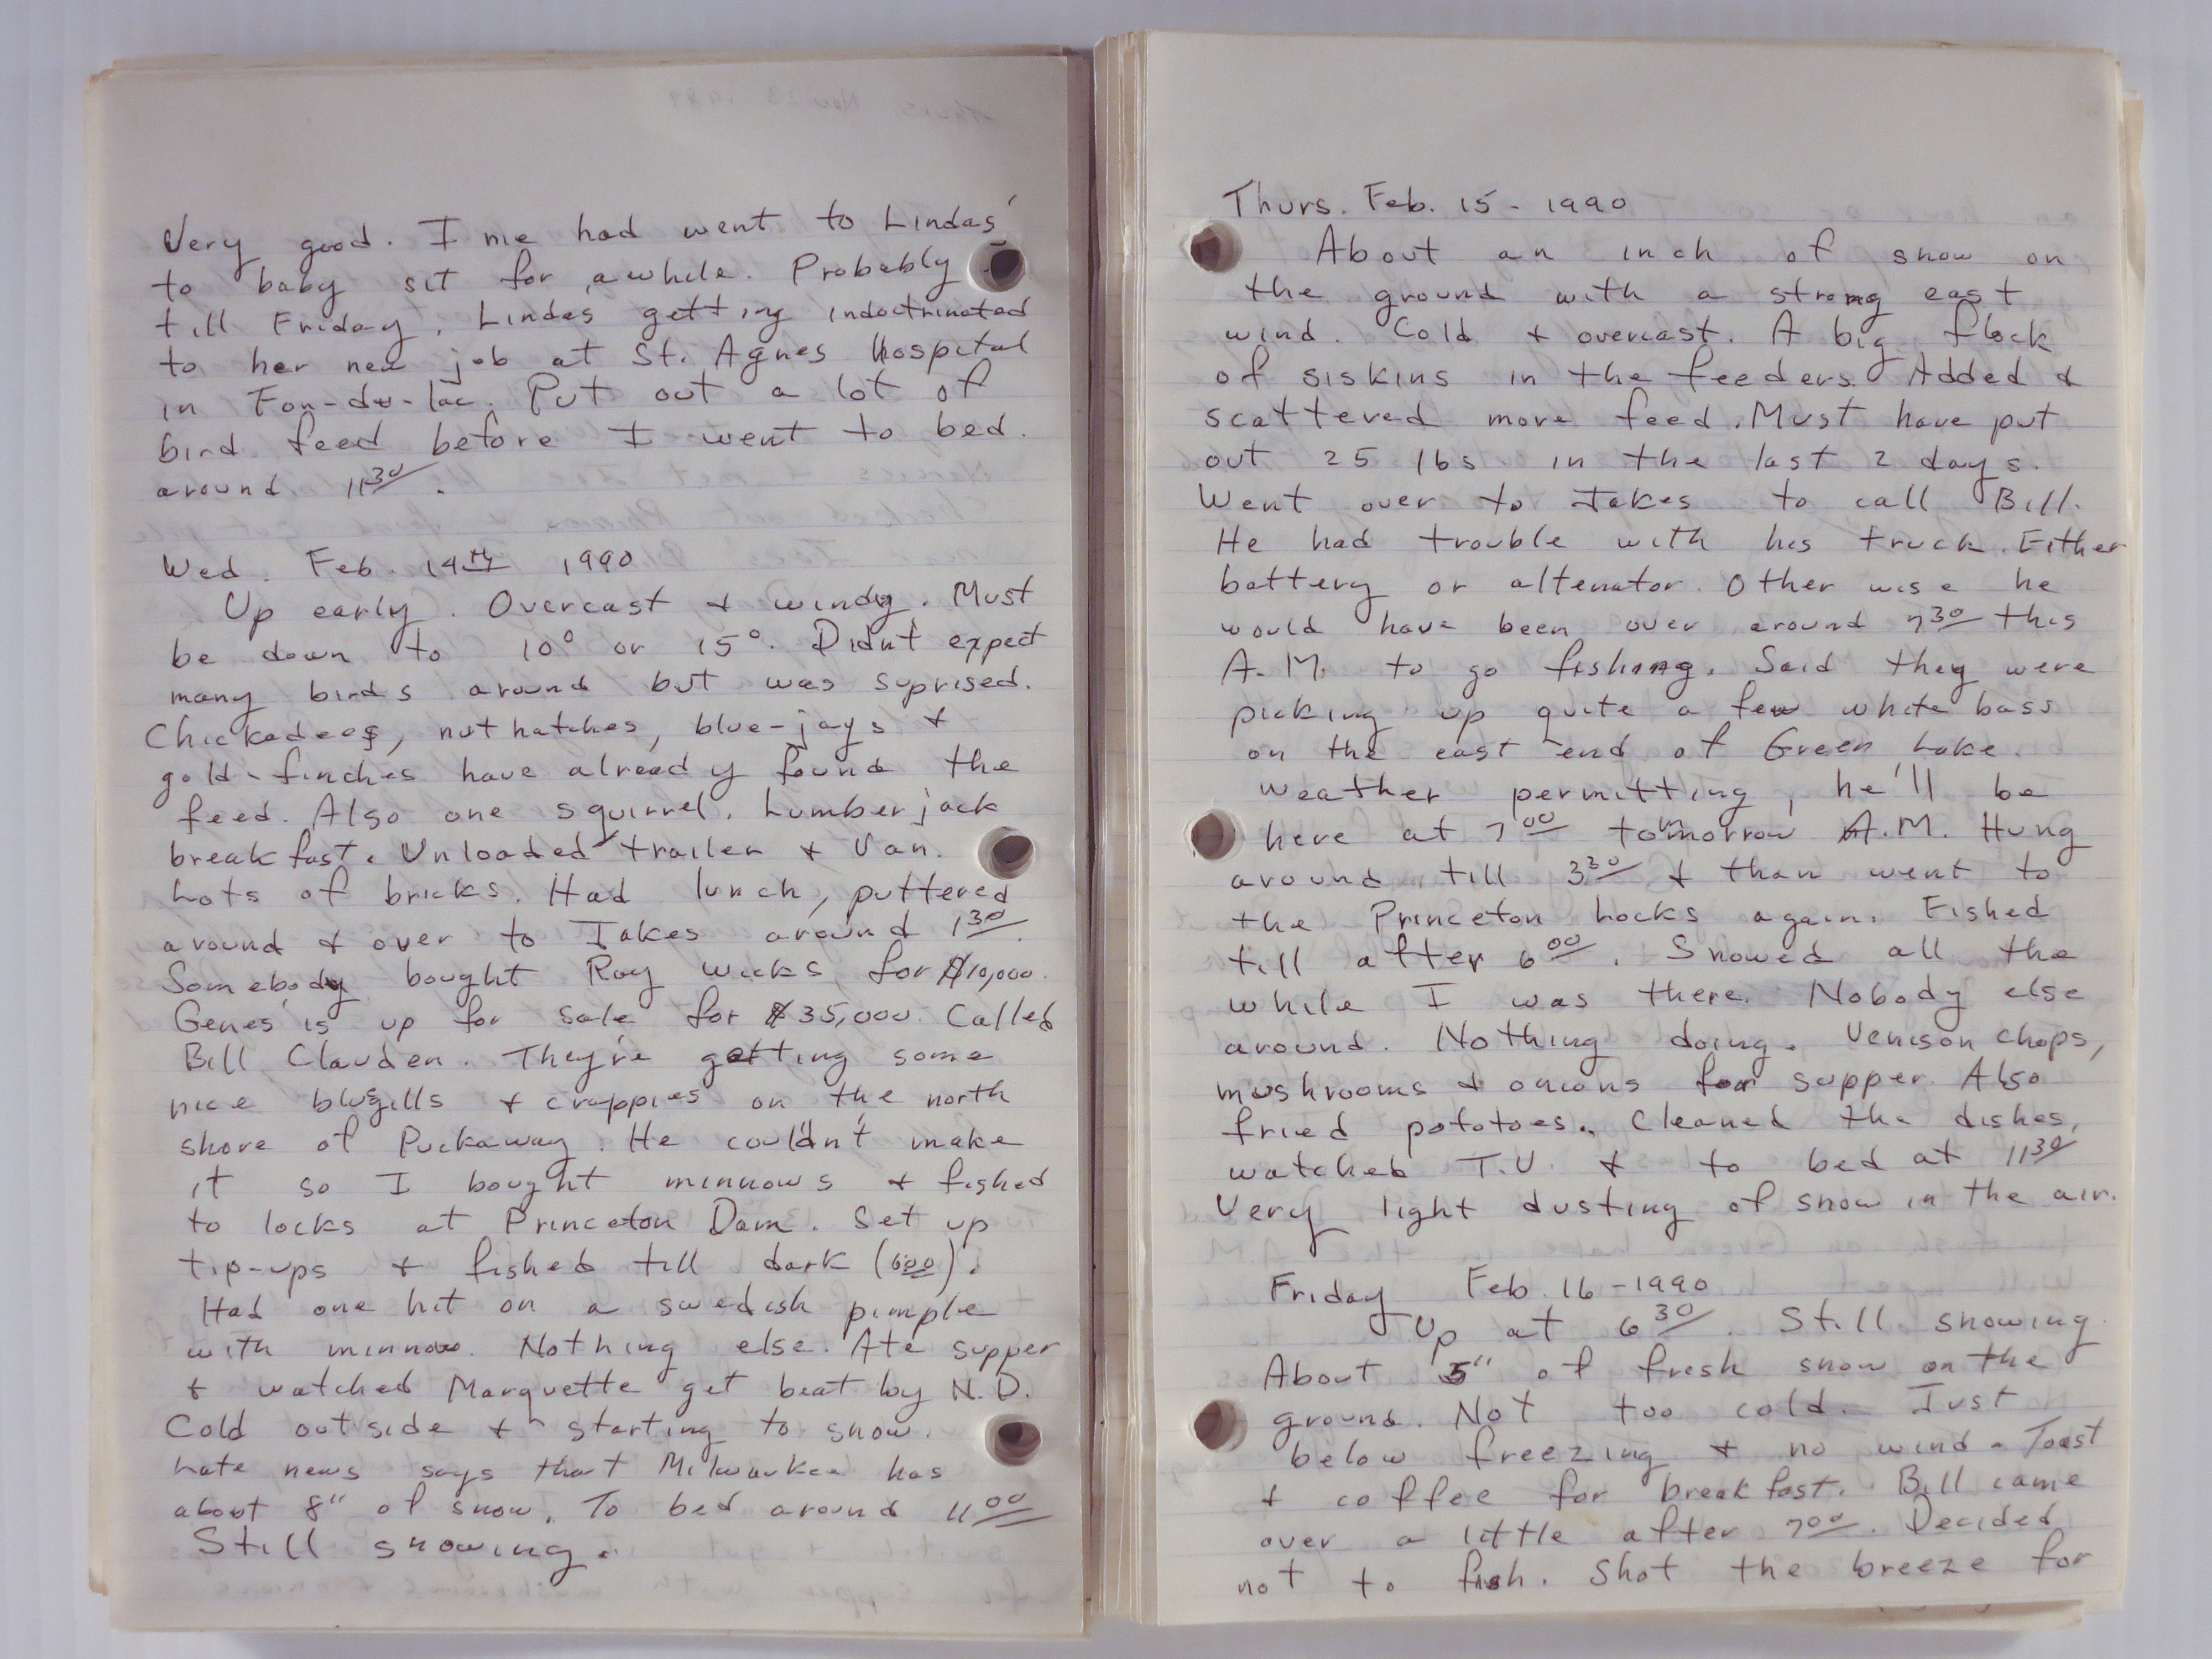 Very good. I me had went to Lindas'
to baby sit for awhile. Probably
till Friday. Lindas getting indoctrinated
to her new job at St. Agnes Hospital
in Fon-du-lac. Put out a lot of
bird feed before I went to bed.
around 1130.
Wed. Feb. 14th 1990
Up early. Overcast & windy. Must
be down to 10° or 15°. Didn't expect
many birds around but was suprised.
Chickadees, nuthatches, blue-jays &
gold-finches have already found the
feed. Also one squirrel. Lumberjack
breakfast. Unloaded trailer & Van.
Lots of bricks. Had lunch, puttered
around & over to Jakes around 130.
Somebody bought Roy Wicks for $10,000.
Genes is up for sale for $35,000. Called
Bill Clauden. They're getting some
nice blugills & crappies on the north
shore of Puckaway. He couldn't make
it so I bought minnows & fished
to locks at Princeton Dam. Set up
tip-ups & fished till dark (600).
Had one hit on a swedish pimple
with minnow. Nothing else. Ate supper
& watched Marquette get beat by N.D.
Cold outside & starting to snow.
Late news says that Milwaukee has
about 8" of snow. To bed around 1100
Still snowing.
Thurs. Feb. 15 - 1990
About an inch of snow on
the ground with a strong east
wind. Cold & overcast. A big flock
of siskins in the feeders. Added &
scattered more feed. Must have put
out 25 lbs in the last 2 days.
Went over to Jakes to call Bill.
He had trouble with his truck. Either
battery or altenator. Other wise he
would have been over around 730 this
A.M. to go fishing. Said they were
picking up quite a few white bass
on the east end of Green Lake.
Weather permitting, he'll be
here at 700 tomorrow A.M. Hung
around till 330 & than went to
the Princeton Locks again. Fished
till after 600. Snowed all the
while I was there. Nobody else
around. Nothing doing. Venison chops,
mushrooms & onions for supper. Also
fried pototoes. Cleaned the dishes,
watched T.V. & to bed at 1130
Very light dusting of snow in the air.
Friday Feb. 16 - 1990
Up at 630. Still snowing.
About 5" of fresh snow on the
ground. Not too cold. Just
below freezing & no wind. Toast
& coffee for breakfast. Bill came
over a little after 700. Decided
not to fish. Shot the breeze for